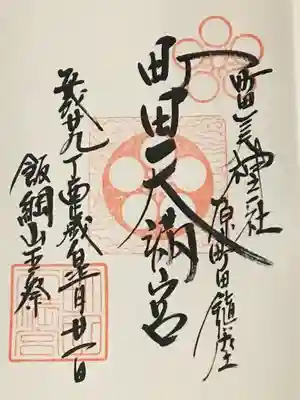 原町田鎮座
町田天満宮
平成廿九丁酉歳皐月廿一日
飯綱山王祭